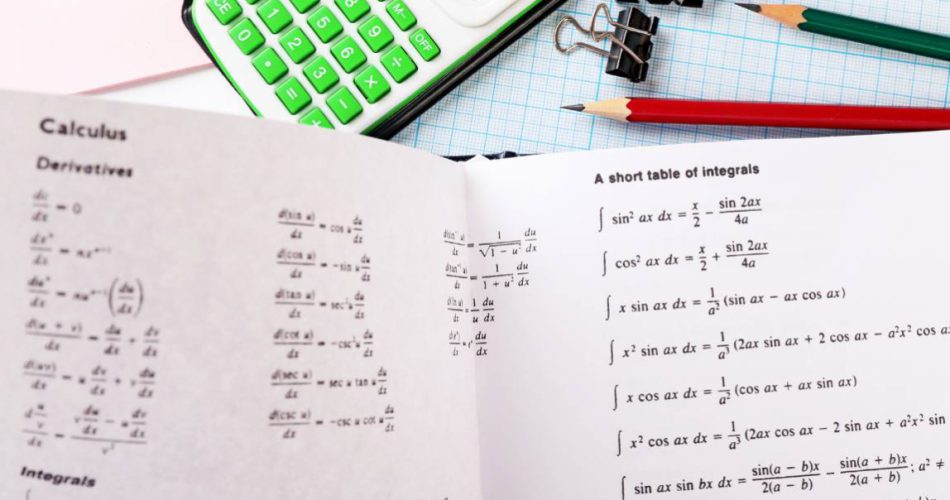 CE 1 5 8 M-
0 2 6 9 OFF
• 3 X ÷
= −
+
Calculus
Derivatives
dc/dx = 0
dxⁿ/dx = nxⁿ⁻¹
duⁿ/dx = nuⁿ⁻¹(du/dx)
d(u + v)/dx = du/dx + dv/dx
d(uv)/dx = u dv/dx + v du/dx
d u/v / dx = (v du/dx − u dv/dx)/v²
Integrals
d(sin u)/dx = cos u du/dx
d(cos u)/dx = −sin u du/dx
d(tan u)/dx = sec² u du/dx
d(cot u)/dx = −csc² u du/dx
d(sec u)/dx = sec u tan u du/dx
d(csc u)/dx = −csc u cot u du/dx
d(sin⁻¹ u)/dx = 1/√(1 − u²) du/dx
d(tan⁻¹ u)/dx = 1/(1 + u²) du/dx
d(ln u)/dx = 1/u du/dx
du/dx
A short table of integrals
∫ sin² ax dx = x/2 − sin 2ax/4a
∫ cos² ax dx = x/2 + sin 2ax/4a
∫ x sin ax dx = 1/a² (sin ax − ax cos ax)
∫ x² sin ax dx = 1/a³ (2ax sin ax + 2 cos ax − a²x² cos a
∫ x cos ax dx = 1/a² (cos ax + ax sin ax)
∫ x² cos ax dx = 1/a³ (2ax cos ax − 2 sin ax + a²x² sin
∫ sin ax sin bx dx = sin(a − b)x/2(a − b) − sin(a + b)x/2(a + b); a² ≠